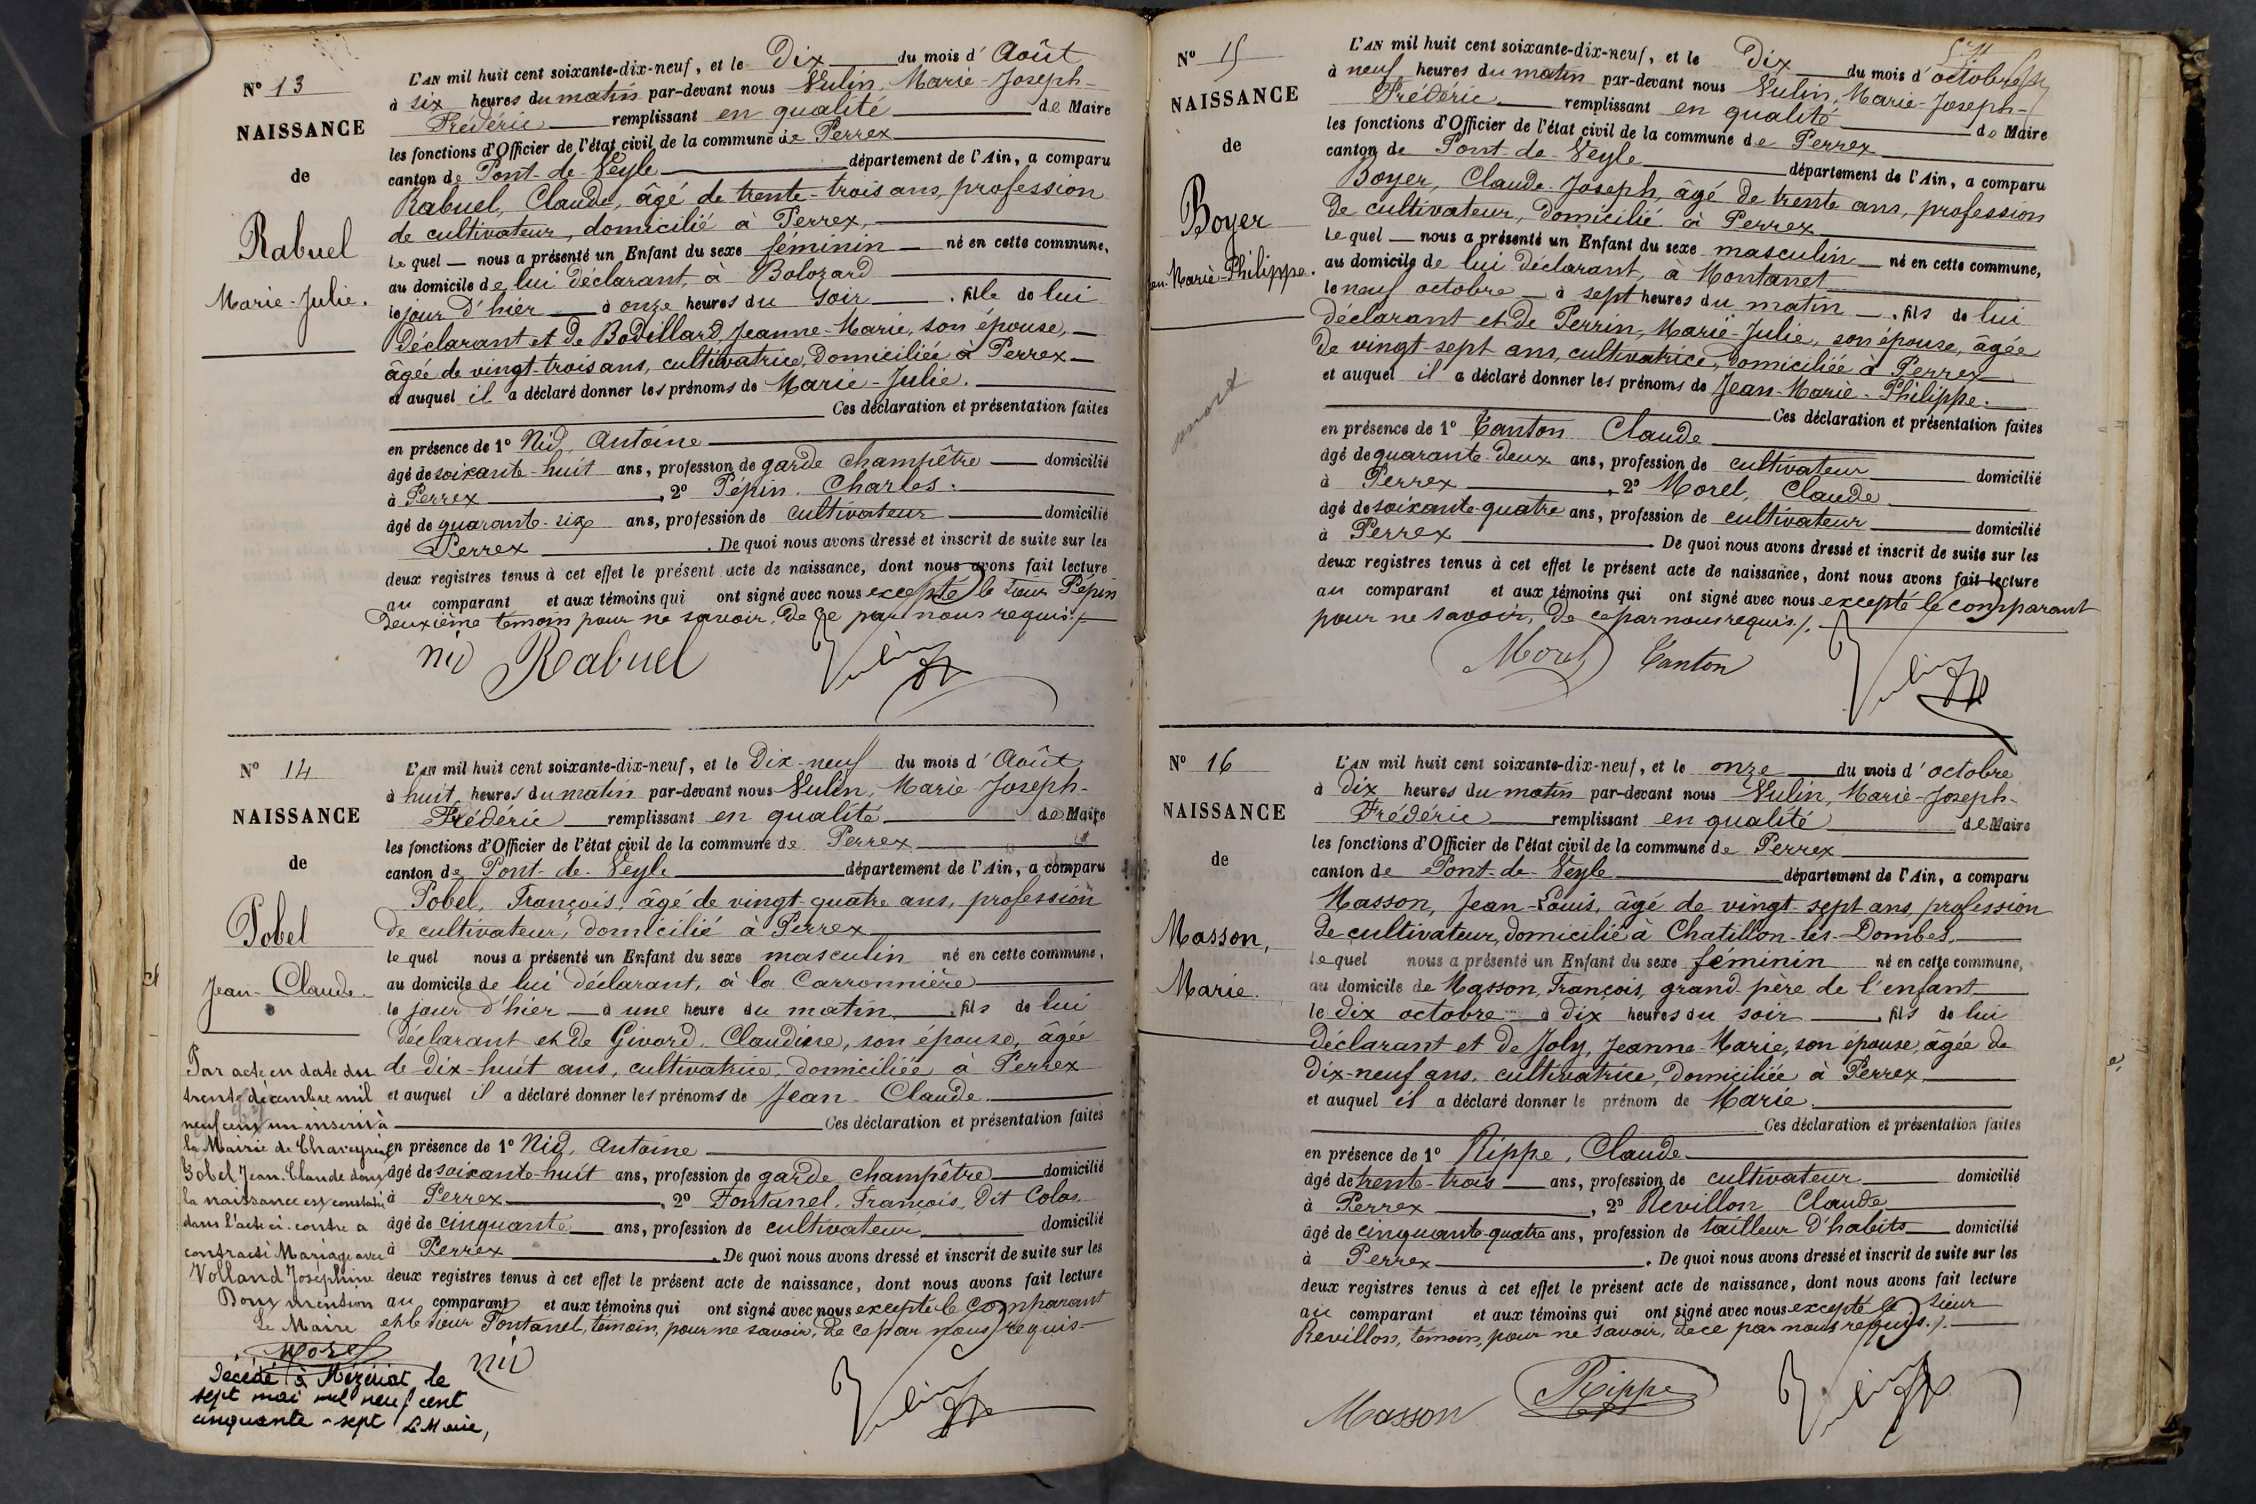 N° 13
NAISSANCE
de
Rabuel
Marie-Julie.
L'AN mil huit cent soixante-dix-neuf, et le Dix du mois d'Août
à six heures du matin par-devant nous Vulin, Marie-Joseph-
Frédéric remplissant en qualité de Maire
les fonctions d'Officier de l'état civil de la commune de Perrex
canton de Pont-de-Veyle département de l'Ain, a comparu
Rabuel, Claude, âgé de trente-trois ans, profession
de cultivateur, domicilié à Perrex,
lequel nous a présenté un Enfant du sexe féminin né en cette commune,
au domicile de lui déclarant, à Bolozard
le jour d'hier à onze heures du soir, fille de lui
déclarant et de Bodillard, Jeanne-Marie, son épouse,
âgée de vingt-trois ans, cultivatrice, domiciliée à Perrex
et auquel il a déclaré donner les prénoms de Marie-Julie.
Ces déclaration et présentation faites
en présence de 1° Nid, Antoine
âgé de soixante-huit ans, profession de garde champêtre domicilié
à Perrex, 2° Pépin, Charles.
âgé de quarante-six ans, profession de cultivateur domicilié
Perrex. De quoi nous avons dressé et inscrit de suite sur les
deux registres tenus à cet effet le présent acte de naissance, dont nous avons fait lecture
au comparant et aux témoins qui ont signé avec nous excepté le sieur Pépin
deuxième témoin pour ne savoir, de ce par nous requis./.
nid Rabuel Vulin
N° 14
NAISSANCE
de
Pobel
Jean-Claude.
Par acte en date du
trente décembre mil
neuf cent un inscrit à
la Mairie de Chaveyriat
Pobel Jean-Claude dont
la naissance est constatée
dans l'acte ci-contre a
contracté Mariage avec
Volland Joséphine
Dont mention
Le Maire
Morel
Décédé à Mézériat le
sept mai mil neuf cent
cinquante-sept Le Maire,
L'AN mil huit cent soixante-dix-neuf, et le Dix-neuf du mois d'Août
à huit heures du matin par-devant nous Vulin, Marie-Joseph-
Frédéric remplissant en qualité de Maire
les fonctions d'Officier de l'état civil de la commune de Perrex
canton de Pont-de-Veyle département de l'Ain, a comparu
Pobel, François, âgé de vingt-quatre ans, profession
de cultivateur, domicilié à Perrex
lequel nous a présenté un Enfant du sexe masculin né en cette commune,
au domicile de lui déclarant, à la Carronnière
le jour d'hier à une heure du matin, fils de lui
déclarant et de Givord, Claudine, son épouse, âgée
de dix-huit ans, cultivatrice, domiciliée à Perrex
et auquel il a déclaré donner les prénoms de Jean-Claude.
Ces déclaration et présentation faites
en présence de 1° Nid, Antoine
âgé de soixante-huit ans, profession de garde champêtre domicilié
à Perrex, 2° Fontanel, François, dit Colas
âgé de cinquante ans, profession de cultivateur domicilié
à Perrex. De quoi nous avons dressé et inscrit de suite sur les
deux registres tenus à cet effet le présent acte de naissance, dont nous avons fait lecture
au comparant et aux témoins qui ont signé avec nous excepté le comparant
et le sieur Fontanel, témoin, pour ne savoir, de ce par nous requis-
nid Vulin
N° 15
NAISSANCE
de
Boyer
Marie-Philippe.
mort
L'AN mil huit cent soixante-dix-neuf, et le Dix du mois d'octobre
à neuf heures du matin par-devant nous Vulin, Marie-Joseph-
Frédéric remplissant en qualité de Maire
les fonctions d'Officier de l'état civil de la commune de Perrex
canton de Pont-de-Veyle département de l'Ain, a comparu
Boyer, Claude-Joseph, âgé de trente ans, profession
de cultivateur, domicilié à Perrex
lequel nous a présenté un Enfant du sexe masculin né en cette commune,
au domicile de lui déclarant, à Montanet
le neuf octobre à sept heures du matin, fils de lui
déclarant et de Perrin, Marie-Julie, son épouse, âgée
de vingt-sept ans, cultivatrice, domiciliée à Perrex
et auquel il a déclaré donner les prénoms de Jean-Marie-Philippe.
Ces déclaration et présentation faites
en présence de 1° Tanton Claude
âgé de quarante-deux ans, profession de cultivateur domicilié
à Perrex, 2° Morel, Claude
âgé de soixante-quatre ans, profession de cultivateur domicilié
à Perrex. De quoi nous avons dressé et inscrit de suite sur les
deux registres tenus à cet effet le présent acte de naissance, dont nous avons fait lecture
au comparant et aux témoins qui ont signé avec nous excepté le comparant
pour ne savoir, de ce par nous requis./.
Morel Tanton Vulin
N° 16
NAISSANCE
de
Masson,
Marie.
L'AN mil huit cent soixante-dix-neuf, et le onze du mois d'octobre
à dix heures du matin par-devant nous Vulin, Marie-Joseph-
Frédéric remplissant en qualité de Maire
les fonctions d'Officier de l'état civil de la commune de Perrex
canton de Pont-de-Veyle département de l'Ain, a comparu
Masson, Jean-Louis, âgé de vingt-sept ans, profession
de cultivateur, domicilié à Chatillon-les-Dombes,
lequel nous a présenté un Enfant du sexe féminin né en cette commune,
au domicile de Masson, François, grand-père de l'enfant
le dix octobre à dix heures du soir, fils de lui
déclarant et de Joly, Jeanne-Marie, son épouse, âgée de
dix-neuf ans, cultivatrice, domiciliée à Perrex,
et auquel il a déclaré donner le prénom de Marie.
Ces déclaration et présentation faites
en présence de 1° Rippe, Claude
âgé de trente-trois ans, profession de cultivateur domicilié
à Perrex, 2° Revillon Claude
âgé de cinquante-quatre ans, profession de tailleur d'habits domicilié
à Perrex. De quoi nous avons dressé et inscrit de suite sur les
deux registres tenus à cet effet le présent acte de naissance, dont nous avons fait lecture
au comparant et aux témoins qui ont signé avec nous excepté le sieur
Revillon, témoin, pour ne savoir, de ce par nous requis./.
Masson Rippe Vulin